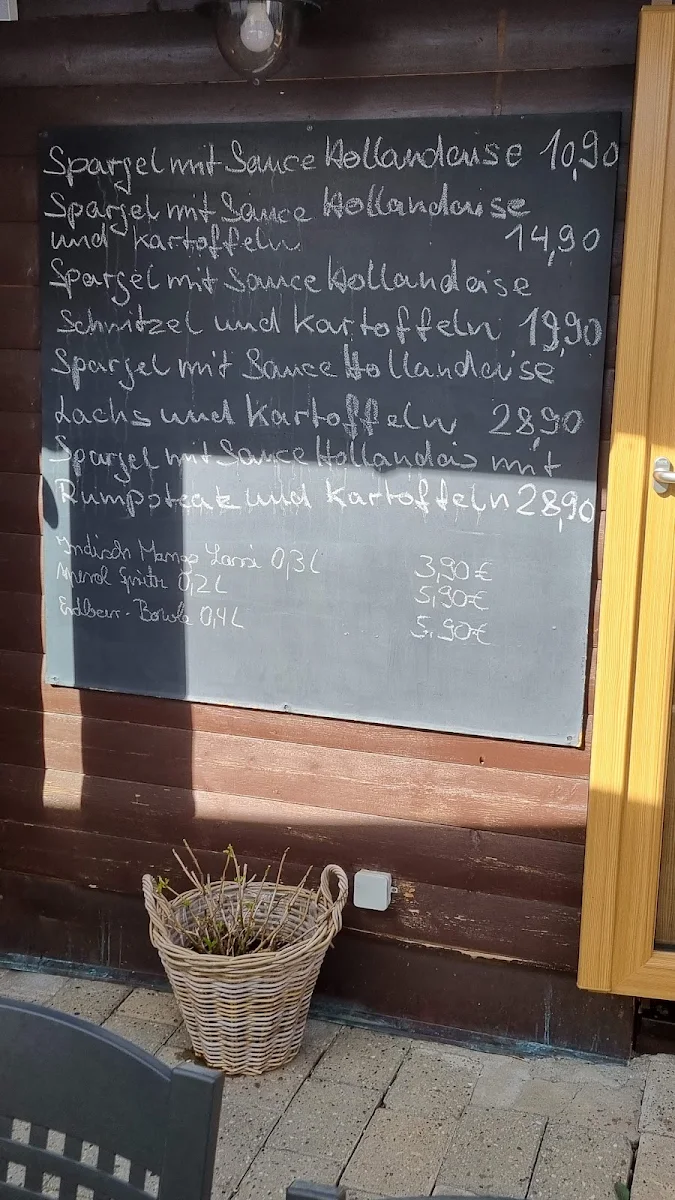 Spargel mit Sauce Hollandaise 10,90
Spargel mit Sauce Hollandaise
und Kartoffeln 14,90
Spargel mit Sauce Hollandaise
Schnitzel und Kartoffeln 19,90
Spargel mit Sauce Hollandaise
Lachs und Kartoffeln 28,90
Spargel mit Sauce Hollandais mit
Rumpsteak und Kartoffeln 28,90
Indisch Mango Lassi 0,3L 3,90€
Aperol Spritz 0,2L 5,90€
Erdbeer-Bowle 0,4L 5,90€